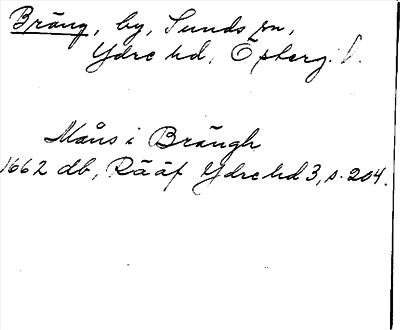 Bräng, by, Sunds sn,
Ydre hd, Österg. l.
Måns i Brängh
1662 db, Rääf Ydre hd 3, s. 204.